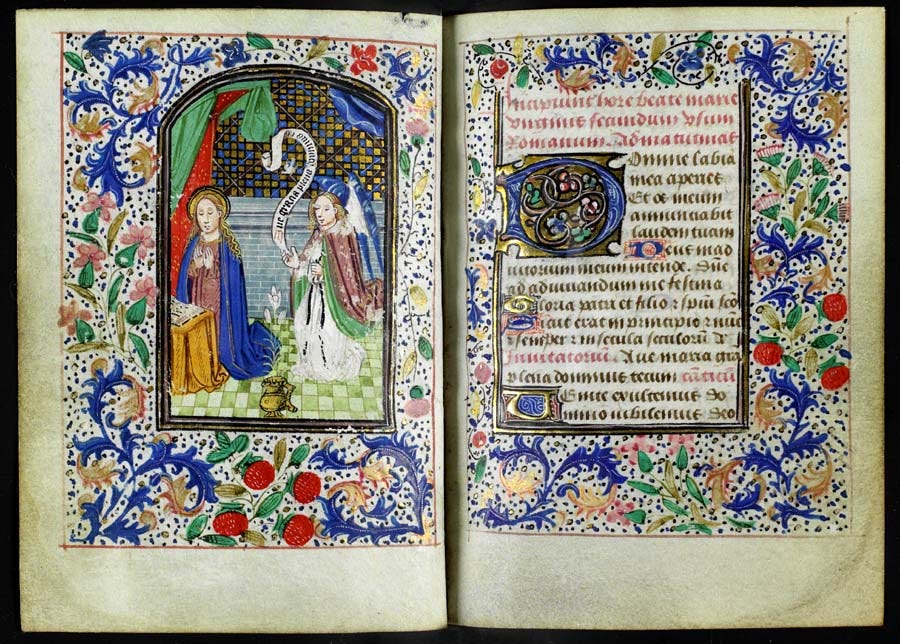 aue gracia plena dominus
Incipiunt hore beate marie
virginis secundum vsum
Romanum. Ad matutinas
Domine labia
mea aperies
Et os meum
annunciabit
laudem tuam
Deus in ad
iutorium meum intende. Dne
ad adiuuandum me festina
Gloria patri et filio r spiui sco
Sicut erat in principio r nuc
r semper r in secula seculorū
Inuitatoriū. Aue maria gra
plena dominus tecum
Uenite exultemus do
mino iubilemus deo